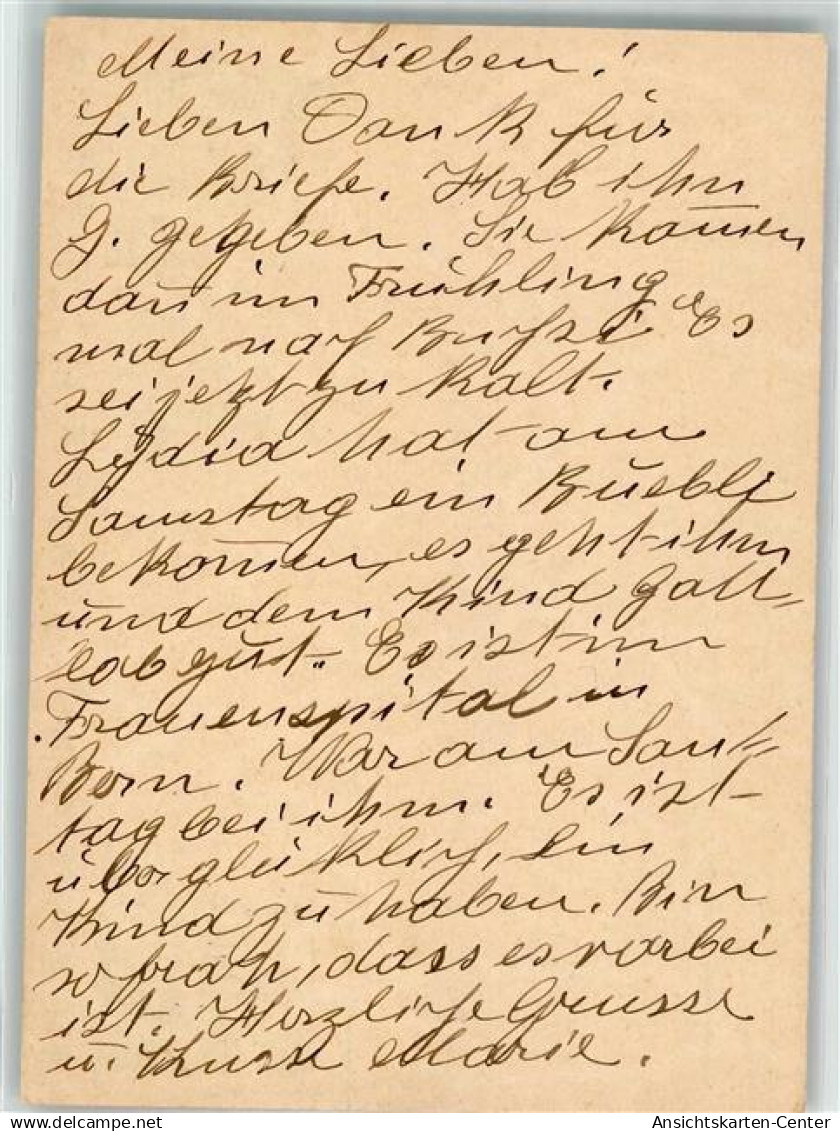 Meine Lieben!
Lieben Dank für
die Briefe. Hab ihn
G. gegeben. Sie kom̄en
dan̄ im Frühling
mal nach Buchsi. Es
sei jetzt zu kalt.
Lydia hat am
Samstag ein Buebli
bekom̄en, es geht ihm
und dem Kind Gott-
lob gut. Es ist im
Frauenspital in
Bern. War am Sonn-
tag bei ihm. Es ist
überglücklich, ein
Kind zu haben. Bin
so froh, dass es vorbei
ist. Herzliche Grüsse
u. Kuss Marie.
Ansichtskarten-Center